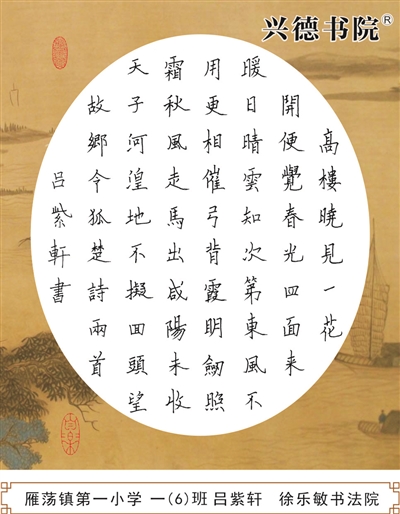 兴德书院®
高樓曉見一花
開便覺春光四面来
暖日晴雲知次第東風不
用更相催弓背霞明劒照
霜秋風走馬出咸陽未收
天子河湟地不擬回頭望
故鄉令狐楚詩兩首
吕紫軒書
雁荡镇第一小学 一(6)班 吕紫轩 徐乐敏书法院